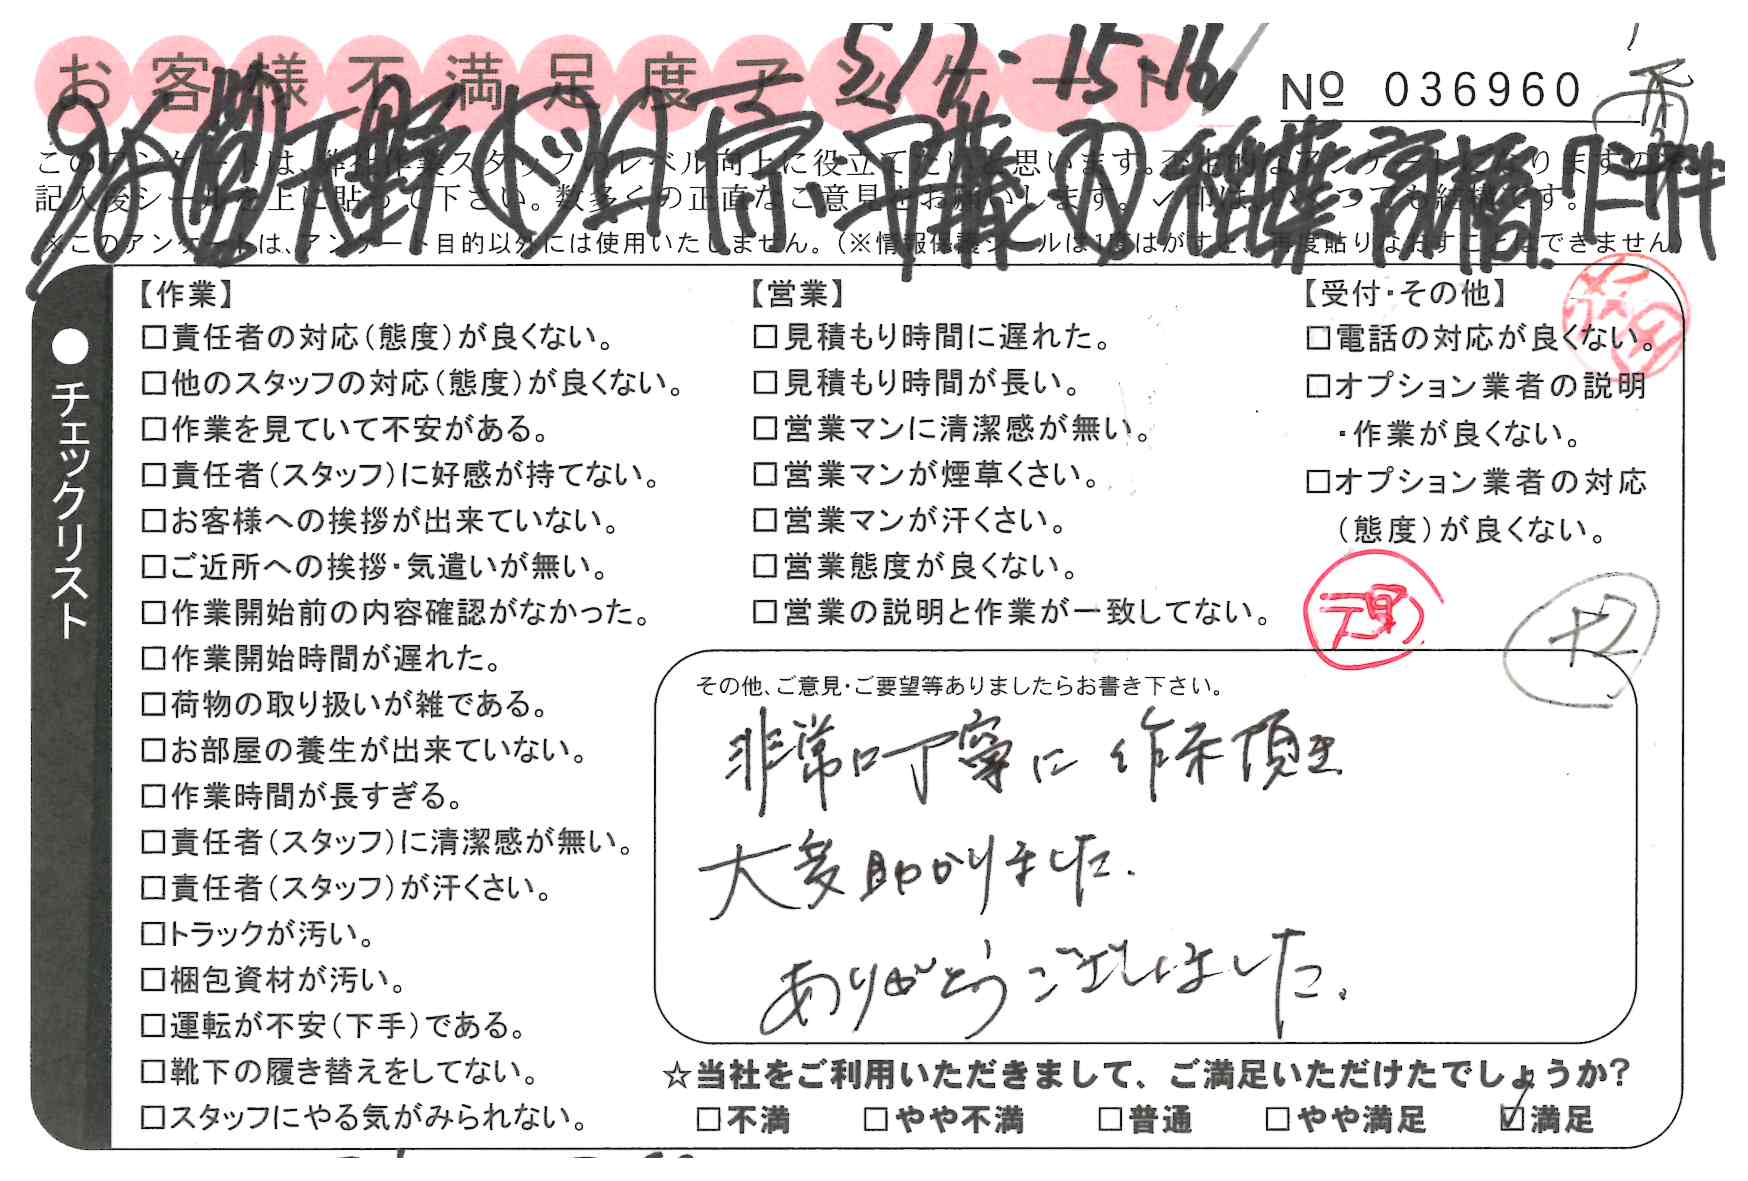 お客様不満足度アンケート
5/7.-15.16
No 036960
このアンケートは、弊社作業スタッフのレベル向上に役立てたいと思います。
記入後シールを上に貼って下さい。数多くの正直なご意見をお願いします。✓印は、いくつでも結構です。
※このアンケートは、アンケート目的以外には使用いたしません。(※情報保護シールは1度はがすと、再度貼りなおすことはできません)
●チェックリスト
【作業】
□責任者の対応(態度)が良くない。
□他のスタッフの対応(態度)が良くない。
□作業を見ていて不安がある。
□責任者(スタッフ)に好感が持てない。
□お客様への挨拶が出来ていない。
□ご近所への挨拶・気遣いが無い。
□作業開始前の内容確認がなかった。
□作業開始時間が遅れた。
□荷物の取り扱いが雑である。
□お部屋の養生が出来ていない。
□作業時間が長すぎる。
□責任者(スタッフ)に清潔感が無い。
□責任者(スタッフ)が汗くさい。
□トラックが汚い。
□梱包資材が汚い。
□運転が不安(下手)である。
□靴下の履き替えをしてない。
□スタッフにやる気がみられない。
【営業】
□見積もり時間に遅れた。
□見積もり時間が長い。
□営業マンに清潔感が無い。
□営業マンが煙草くさい。
□営業マンが汗くさい。
□営業態度が良くない。
□営業の説明と作業が一致してない。
【受付・その他】
□電話の対応が良くない。
□オプション業者の説明
・作業が良くない。
□オプション業者の対応
(態度)が良くない。
+2
その他、ご意見・ご要望等ありましたらお書き下さい。
非常に丁寧に作業頂き
大変助かりました.
ありがとうございました.
☆当社をご利用いただきまして、ご満足いただけたでしょうか?
□不満 □やや不満 □普通 □やや満足 ☑満足